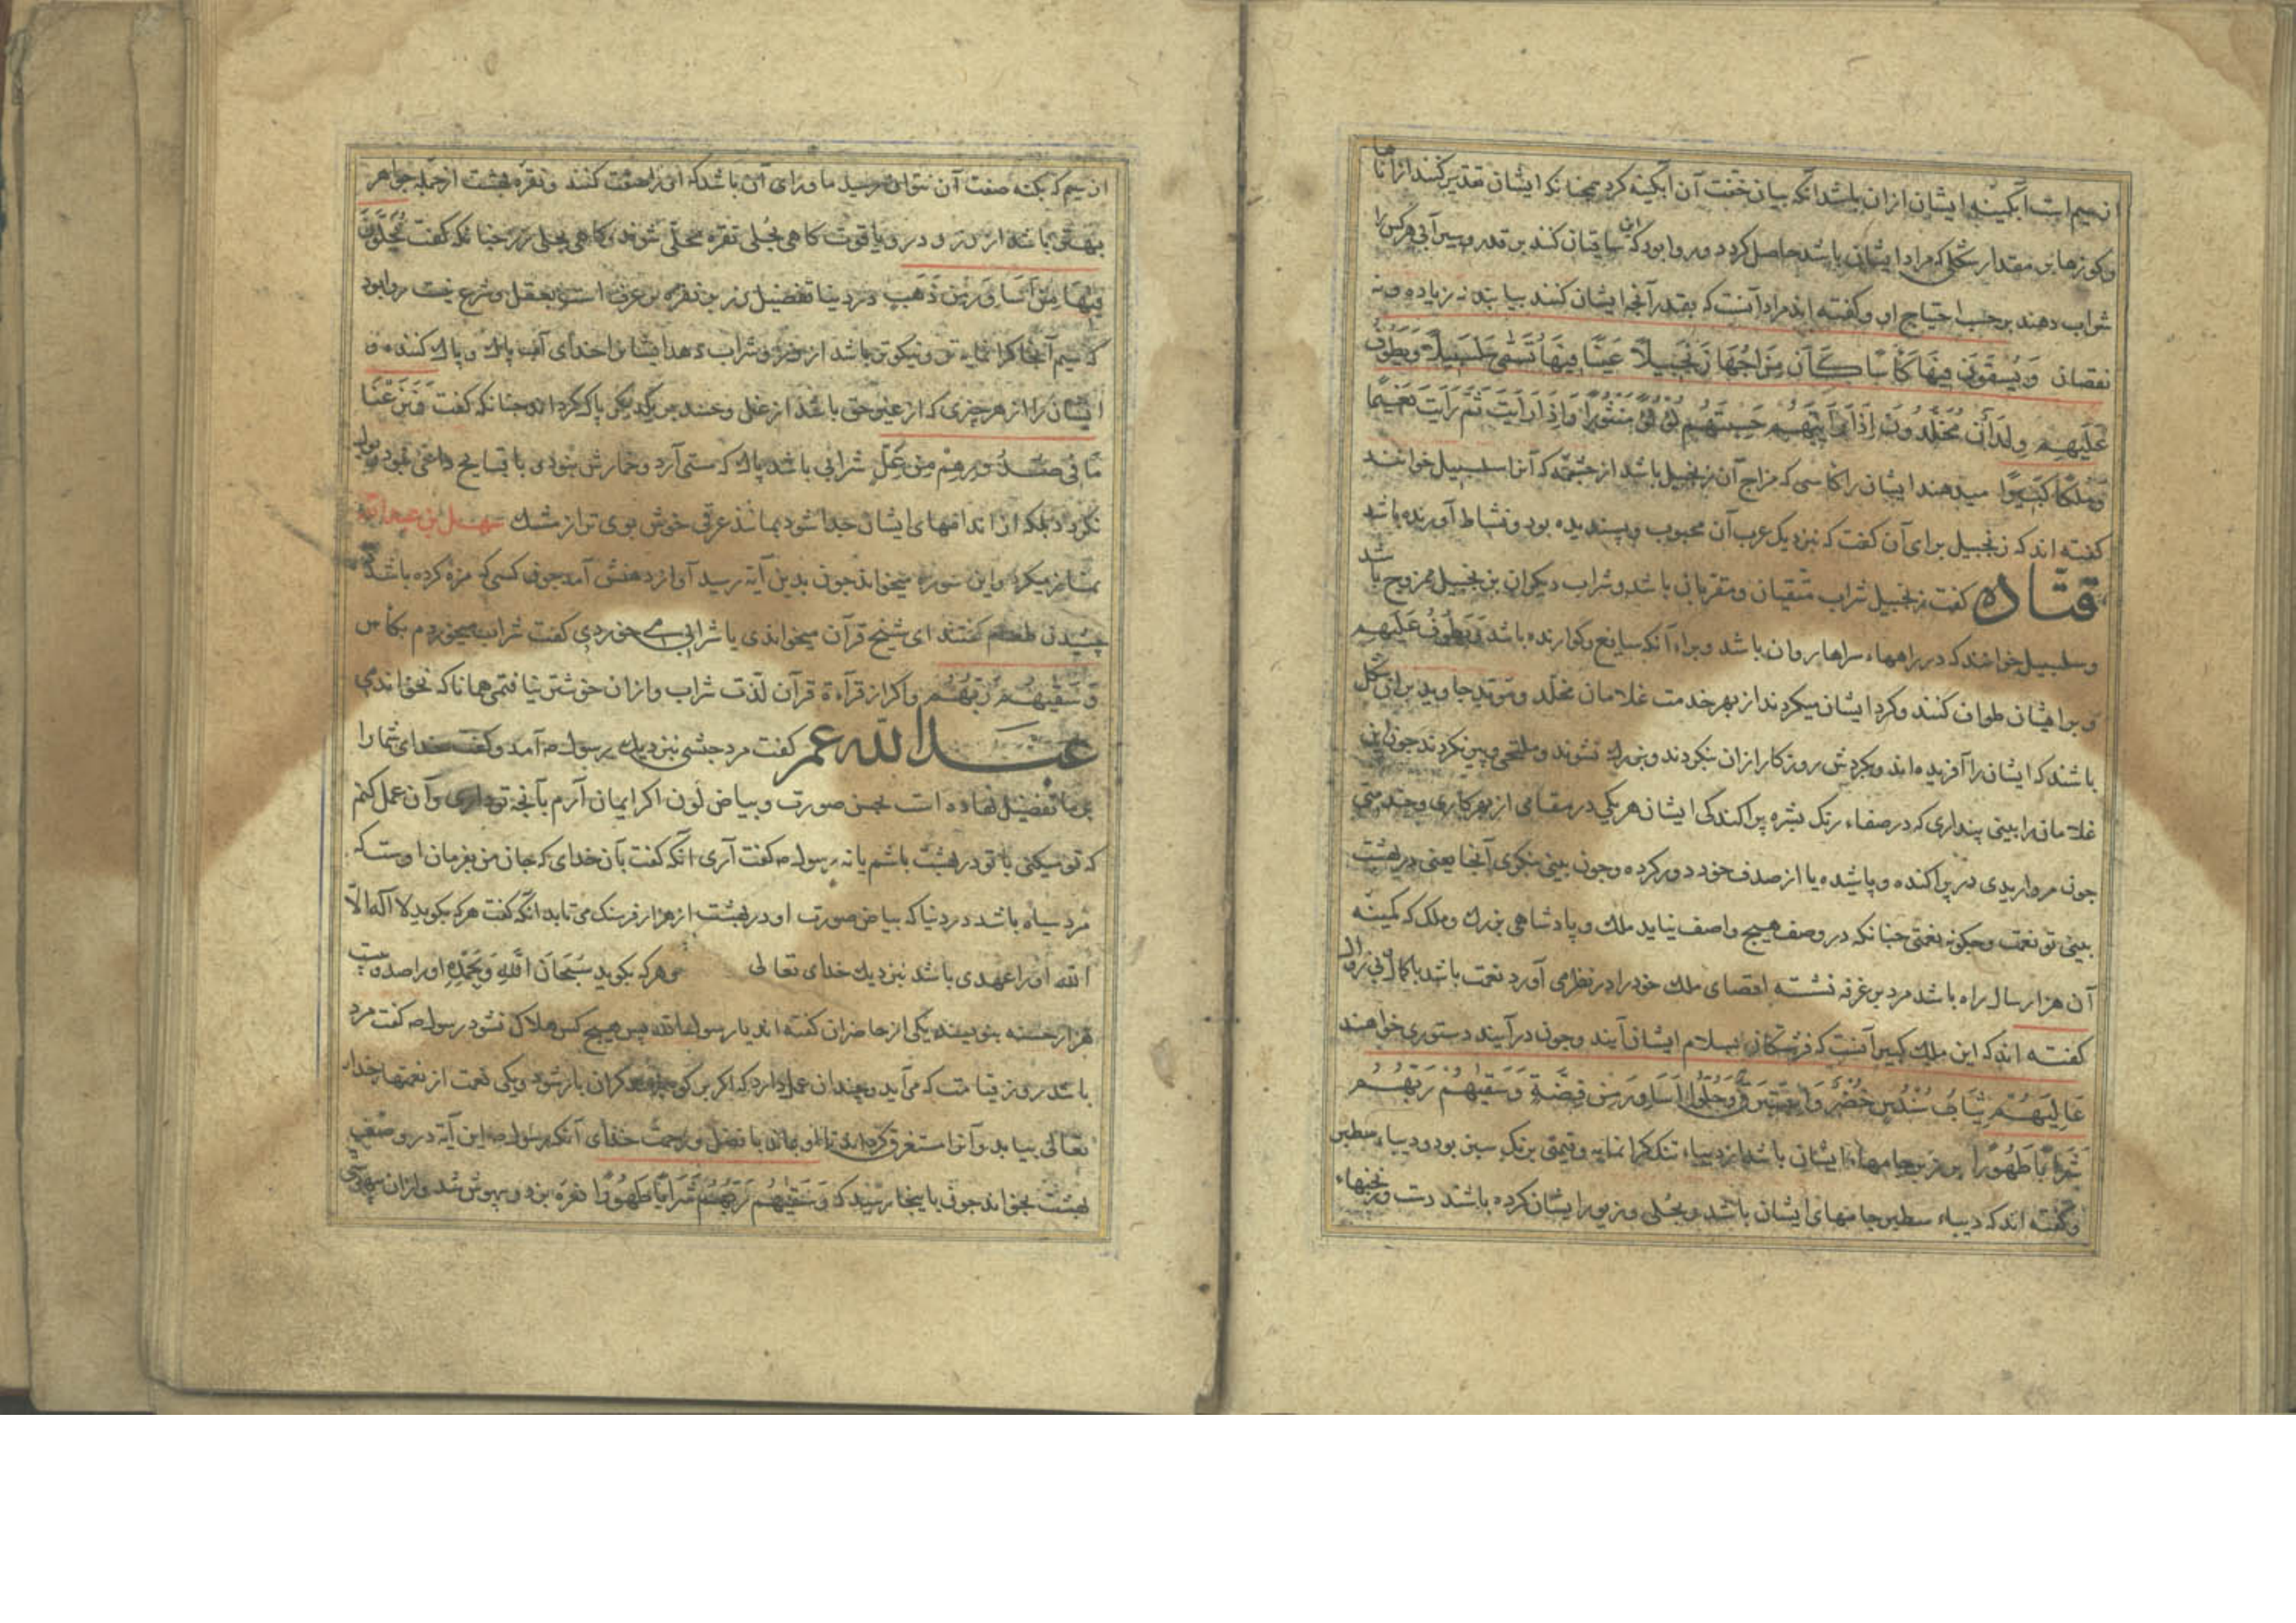 از سیم است آبگینهٔ ایشان از ان باشد انکه بیان خفت آن آبگینه کرد همچنانکه ایشان تقدیر کنند از اناها
و کوزها بر مقدار شکلی که مراد ایشان باشد حاصل کردد و روا بود که این ساقیان کنند بر قدر و سیرآبی هر کس را
شراب دهند بر حسب احتیاج او و کفته اند مراد آنست که بقدر آنچه ایشان کنند بیابند نه زیاده و نه
نقصان وَيُسْقَوْنَ فِيهَا كَأْسًا كَانَ مِزَاجُهَا زَنْجَبِيلًا عَيْنًا فِيهَا تُسَمَّى سَلْسَبِيلًا وَيَطُوفُ
عَلَيْهِمْ وِلْدَانٌ مُخَلَّدُونَ إِذَا رَأَيْتَهُمْ حَسِبْتَهُمْ لُؤْلُؤًا مَنْثُورًا وَإِذَا رَأَيْتَ ثَمَّ رَأَيْتَ نَعِيمًا
وَمُلْكًا كَبِيرًا میدهند ایشان را کاسی که مزاج آن زنجبیل باشد از چشمهٔ که آنرا سلسبیل خوانند
کفته اند که زنجبیل برای آن کفت که نزدیک عرب آن محبوب و پسندیده بود و نشاط آورنده باشد
قتاده کفت زنجبیل شراب متقیان و مقربانی باشد و شراب دیکران بزنجبیل ممزوج باشد
و سلسبیل خوانند که در راهها و سراها روان باشد و براء آنکه سایغ و کوارنده باشد وَيَطُوفُ عَلَيْهِمْ
و بر ایشان طواف کنند و کرد ایشان میکردند از بهر خدمت غلامان مخلّد و مؤبد جاوید بر این شکل
باشند که ایشان را آفریده اند و بکردش روزکار از ان بنکردند و بزرک نشوند و ملتحی و پیر نکردند چون این
غلامان را بینی پنداری که در صفاء رنک بشره پراکندکی ایشان هر یکی در مقامی از بهر کاری و خدمتی
چون مرواریدی در پراکنده و پاشیده یا از صدف خود دور کرده و چون بینی بنکری آنجا یعنی در بهشت
بینی تو نعمت و چکونه نعمتی چنانکه در وصف هیچ واصف نیاید ملک و پادشاهی بزرك و ملک که کمینه
آن هزار سال راه باشد مرد بر غرفه نشسته اقصای ملك خود را در نظر می آورد نعمت باشد با کمال و بی زوال
کفته اند که این ملك کبیر آنست که فرشتکان بسلام ایشان آیند و چون درآیند دستوری خواهند
عَالِيَهُمْ ثِيَابُ سُنْدُسٍ خُضْرٌ وَإِسْتَبْرَقٌ وَحُلُّوا أَسَاوِرَ مِنْ فِضَّةٍ وَسَقَاهُمْ رَبُّهُمْ
شَرَابًا طَهُورًا بر زبر جامهاء ایشان باشد از دیباء تنک کرانمایه و قیمتی برنک سبز بود و دیباء سطبر
و کفته اند که دیباء سطبر جامهای ایشان باشد و بحُلی و زیور ایشان کرده باشند دست ورنجنهاء
از سیم که بکنه صفت آن نتوان رسید ما ورای آن باشد که آنرا صفت کنند و نقره بهشت از جمله جواهر
بهتر باشد از زر و در و یاقوت کاهی بحُلی نقره محلّی شوند و کاهی بحلی زر چنانکه کفت يُحَلَّوْنَ
فِيهَا مِنْ أَسَاوِرَ مِنْ ذَهَبٍ در دنیا تفضیل زر بر نقره بر عرف است و بعقل و شرع نیست روا بود
که سیم آنجا کرانمایه تر و نیکوتر باشد از زر و شراب دهد ایشانرا خدای آب پاك و پاك کننده و
ایشان را از هر چیزی که از غیر حق باشد از غل و حسد بر یکدیکر پاک کرداند چنانکه کفت وَنَزَعْنَا
مَا فِي صُدُورِهِمْ مِنْ غِلٍّ شرابی باشد پاك که مستی آرد و خمارش نبودی با قبایح داعی نبود و بول
نکردد بلکه از اندامهای ایشان جدا شود بمانند عرقی خوش بوی تر از مشك سهل بن عبدالله
نماز میکرد و این سوره میخواند چون بدین آیه رسید آواز دهنش آمد چون کسی که مزه کرده باشد
چشیدن طعم کفتند ای شیخ قرآن میخواندی یا شرابی می خوردی کفت شراب میخوردم بکاس
وَسَقَاهُمْ رَبُّهُمْ و اکر از قرآءة قرآن لذّت شراب و ازان خوشتر نیافتمی همانا که نخواندمی
عبدالله عمر کفت مرد حبشی نزدیك رسول ص آمد و کفت خدای شما را
بر ما تفضیل نهاده است بحسن صورت و بیاض لون اکر ایمان آرم بآنچه تو داری و آن عمل کنم
که تو میکنی با تو در بهشت باشم یا نه رسول ص کفت آری آنکه کفت بآن خدای که جان من بفرمان اوست که
مرد سیاه باشد در دنیا که بیاض صورت او در بهشت از هزار فرسنک می تابد آنکه کفت هر که بکوید لا اله الّا
الله او را عهدی باشد نزدیك خدای تعالی و هر که بکوید سُبْحَانَ اللَّهِ وَبِحَمْدِهِ او را صد و بیست
هزار حسنه بنویسند یکی از حاضران کفته اند یا رسول الله پس هیچ کس هلاك نشود رسول ص کفت مرد
باشد روز قیامت که می آید و چندان عمل دارد که اکر بر کوه نهند کران بار شود و یکی نعمت از نعمتهاء خدای
تعالی بیاید و آنرا مستغرق کرداند تا او بماند با فضل و رحمت خدای آنکه رسول ص این آیة در وصف
بهشت بخواند چون باینجا رسید که وَسَقَاهُمْ رَبُّهُمْ شَرَابًا طَهُورًا نعره بزد و بیهوش شد و از ان بیهوشی